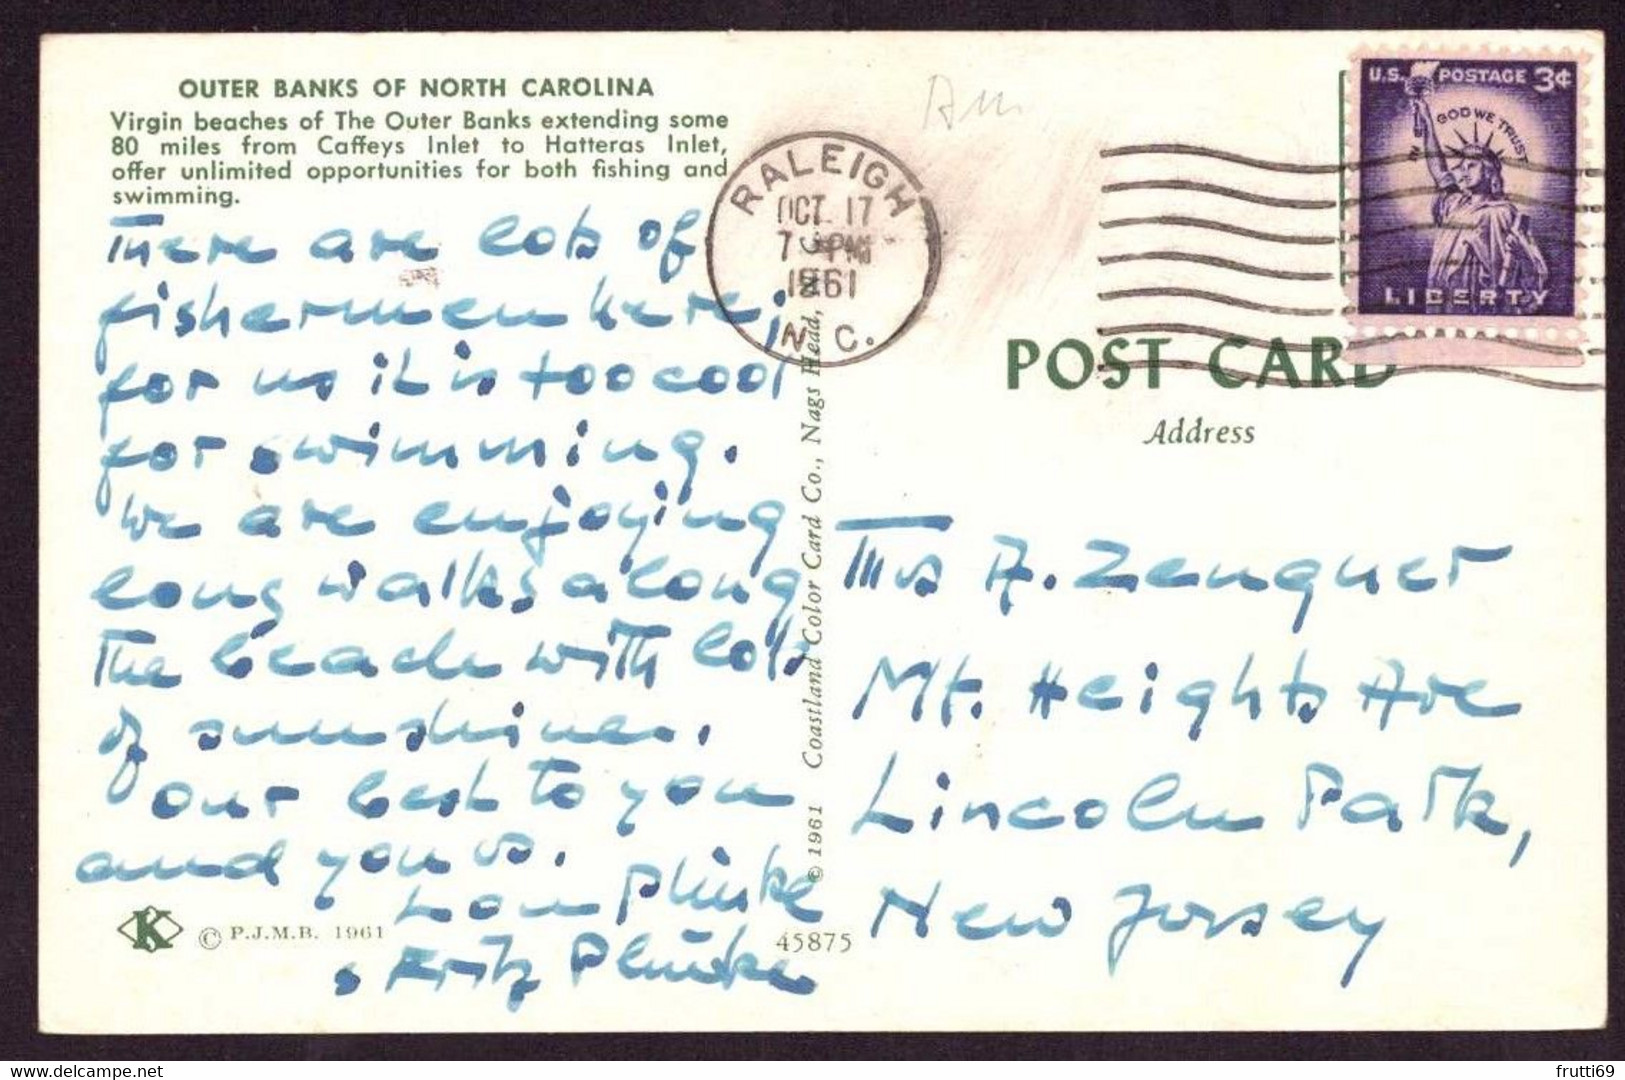 OUTER BANKS OF NORTH CAROLINA
Virgin beaches of The Outer Banks extending some
80 miles from Caffeys Inlet to Hatteras Inlet,
offer unlimited opportunities for both fishing and
swimming.
There are lots of
fishermen here,
for us it is too cool
for swimming.
We are enjoying
long walks along
the beach with lots
of sunshine.
Our best to you
and yours.
& Fritz
K
© P.J.M.B. 1961
45875
© 1961 Coastland Color Card Co., Nags Head, N. C.
RALEIGH
OCT 17
7 PM
1961
N. C.
U.S. POSTAGE 3¢
IN GOD WE TRUST
LIBERTY
POST CARD
Address
Mrs A. Zengner
Mt. Heights Ave
Lincoln Park,
New Jersey
frutti69